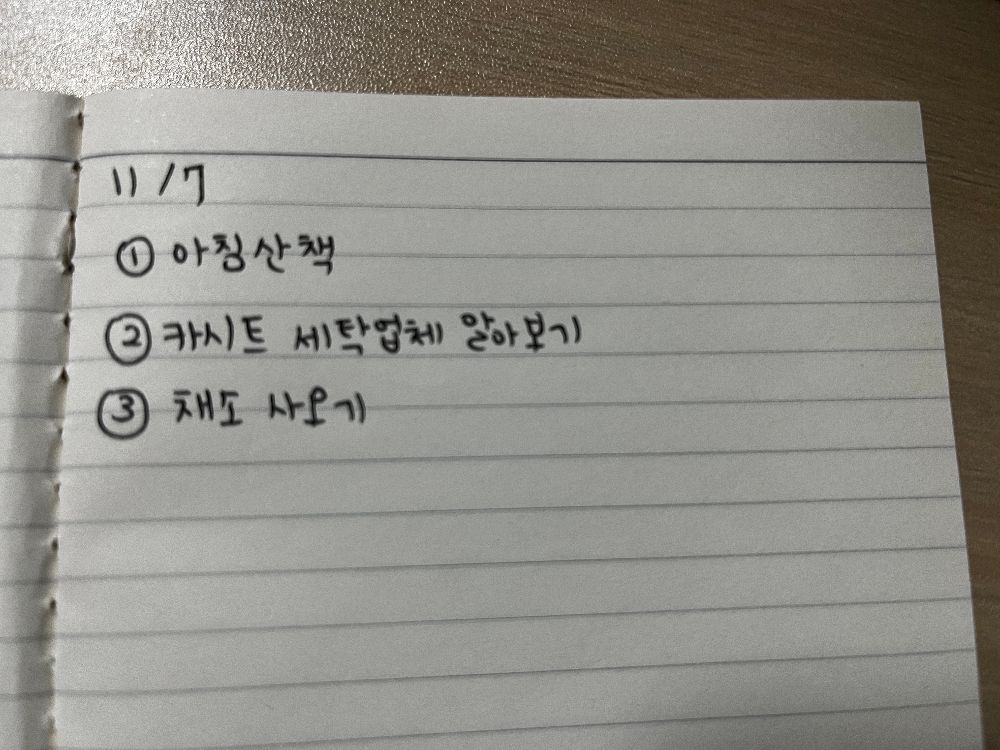 11/7
① 아침산책
② 카시트 세탁업체 알아보기
③ 채소 사오기